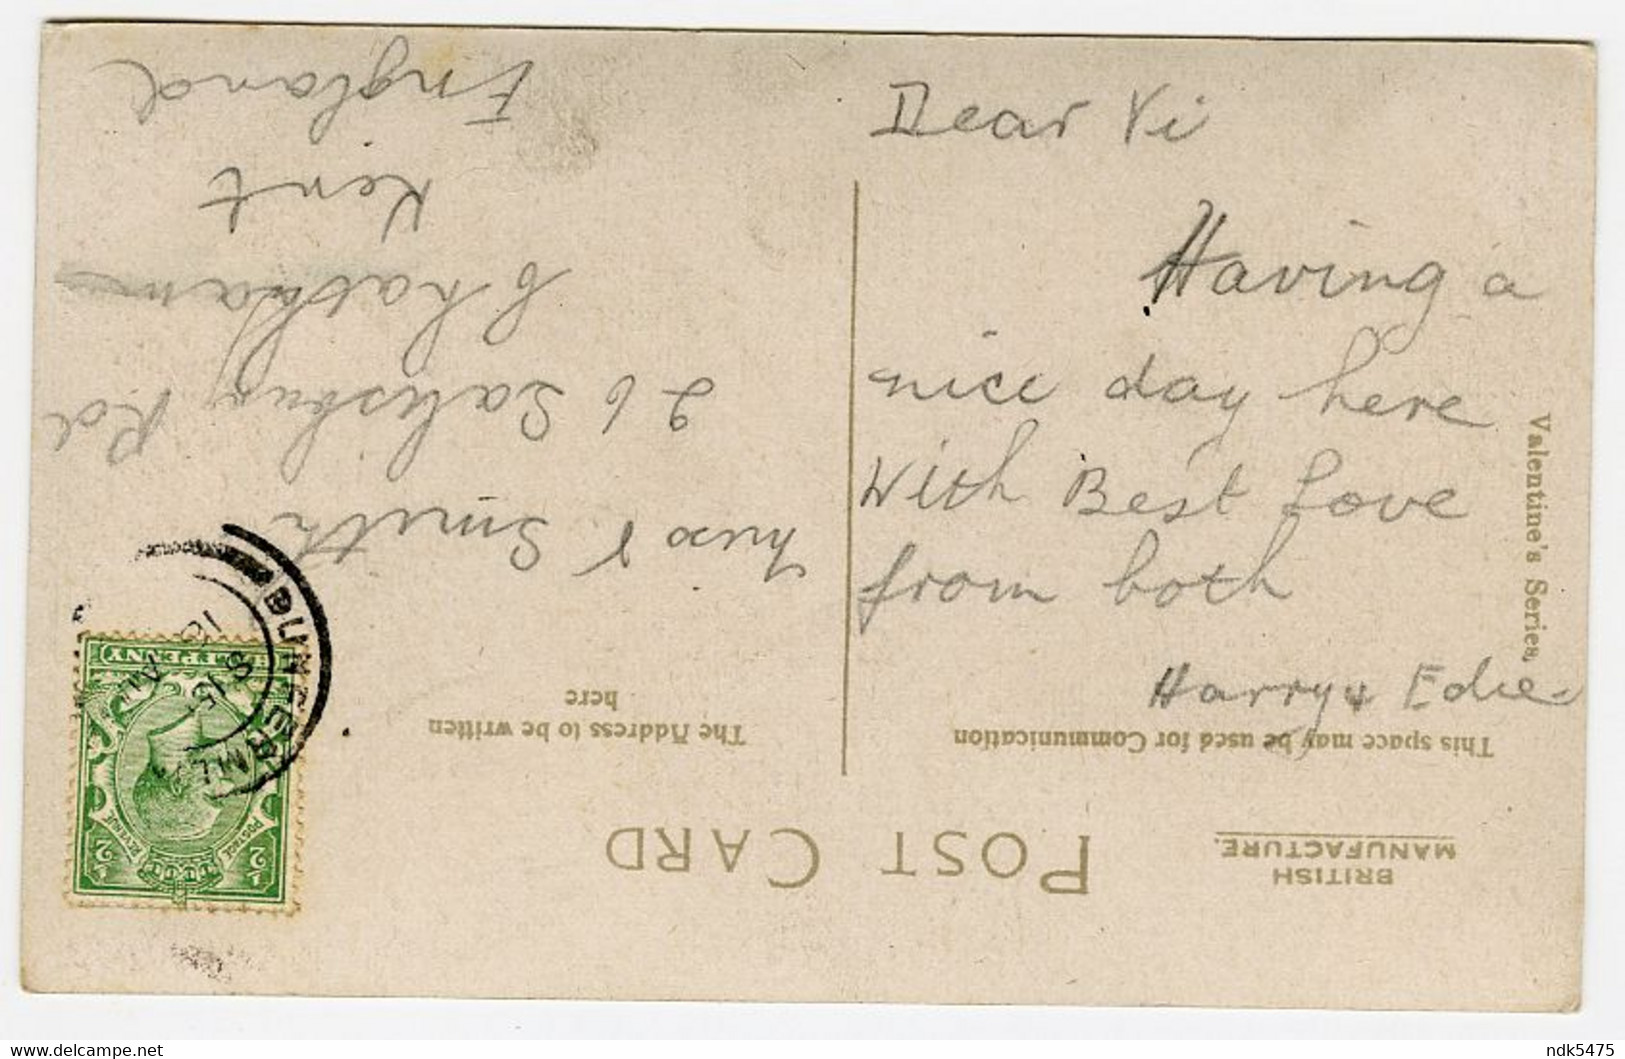 Dear Vi
Having a
nice day here
With Best Love
from both
Harry & Edie
Valentine's Series,
BRITISH
MANUFACTURE.
POST CARD
This space may be used for Communication
The Address to be written
here
Miss V Smith
26 Salisbury Rd
Chatham
Kent
England
POSTAGE
REVENUE
½
½
HALFPENNY
8 15
ndk5475